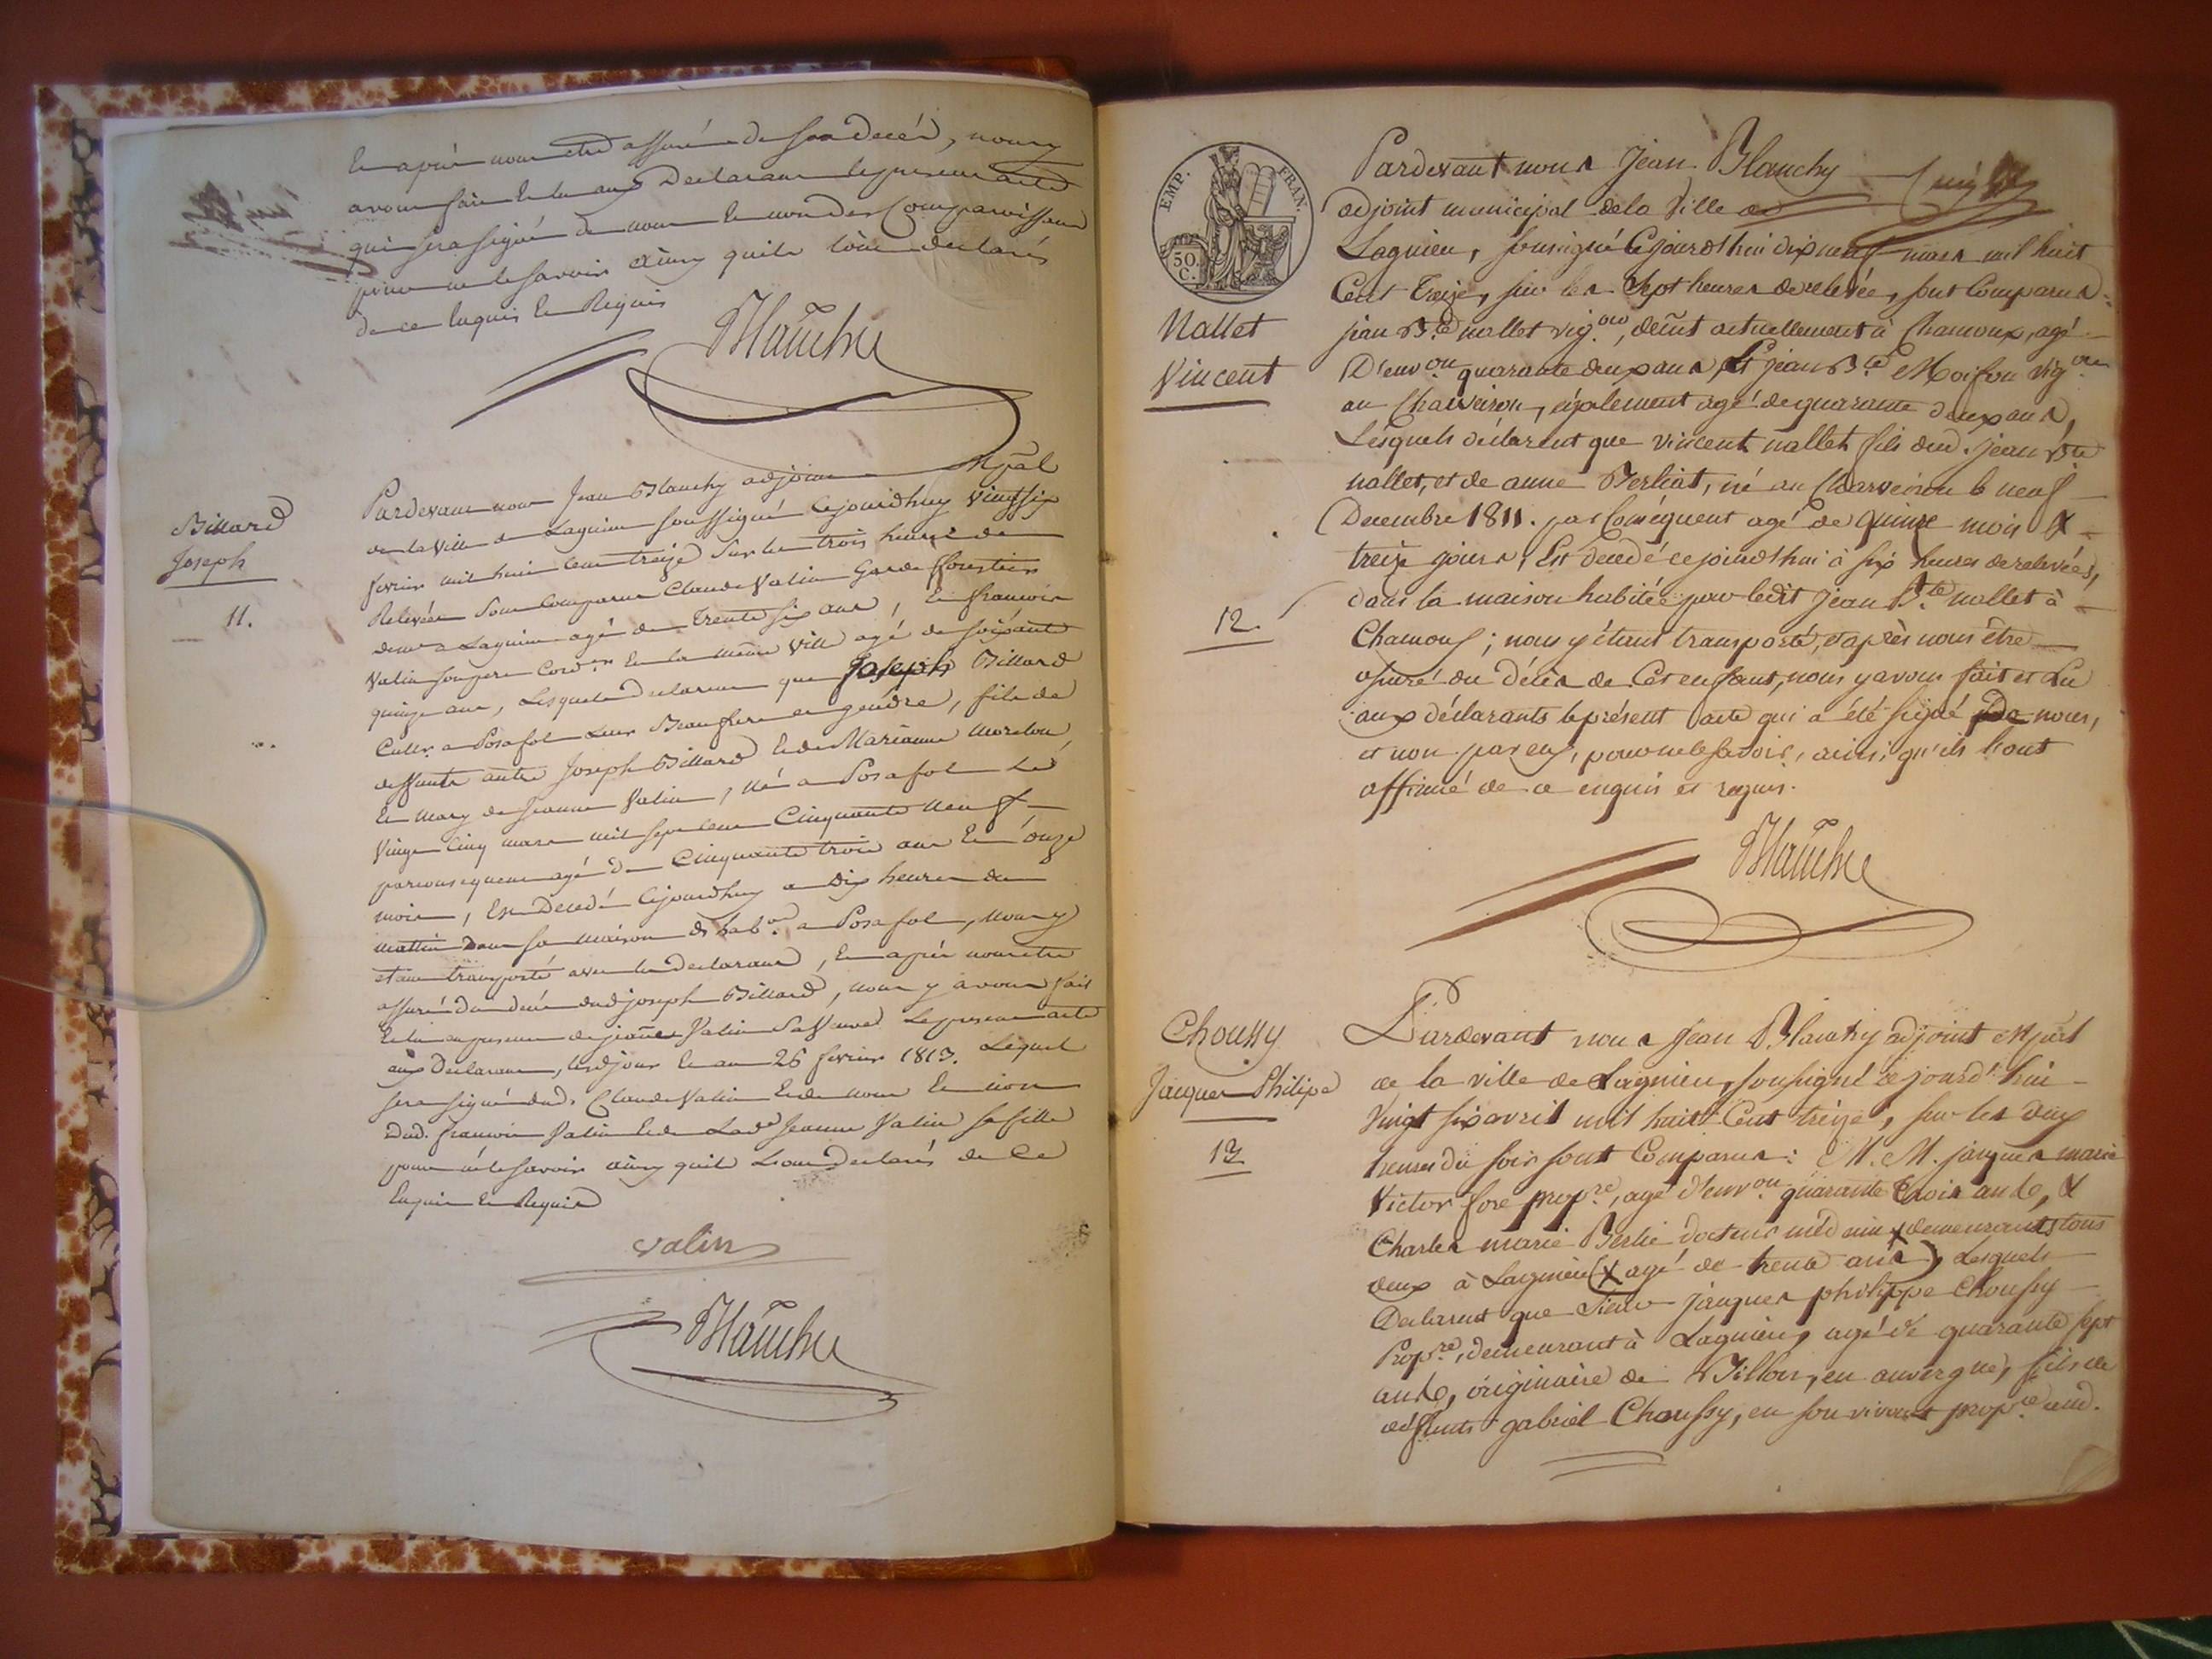 Et après nous etre assuré du sus decéd, nous y
avons fait et lu aux Declarans le present acte
qui sera signé de nous et non des Comparoissans
pour ne le savoir ainsy quils l'ont declarés
de ce Enquis et Requis
Blanchy
Billard
Joseph
11.
Pardevant nous Jean Blanchy adjoint Mpâl
de la Ville de Lagnieu soussigné Cejourdhuy vingt six
fevrier mil huit cent treize Sur les trois heures de
Relevées Sont comparus Claude Valin Garde fforestier
demt a Lagnieu agé de Trente six ans, Et francois
Valin son pere Cordr En la même Ville agé de soixante
quinze ans, Lesquels declarent que Joseph Billard
Cultr a Posafol Leur Beaufrere et gendre, fils de
deffunts autre Joseph Billard Et de Marianne Morelou,
Et mary de Jeanne Valin, Né a Posafol Le
Vingt Cinq mars mil sept cent Cinquante neuf
par consequent agé de Cinquante trois ans Et onze
mois, Est Decedé Cejourdhuy a Dix heures du
mattin dans sa maison d'habon a Posafol, nous y
etant transporté avec les declarans, Et après nous etre
assuré du decés dud joseph Billard, nous y avons fait
Et lu en presence de jeanne Valin Sa Veuve Le present acte
aux Declarans, lesd jour Et an 26 fevrier 1813. Lequel
sera signé dud. Claude Valin Et de nous Et non
dud. francois Valin Et de Lade Jeanne Valin sa fille
pour ne le savoir ainsy quils L'ont Declarés de Ce
Enquis Et Requis
Valin
Blanchy
EMP. FRAN.
50.
C.
Nallet
Vincent
12.
Pardevant nous Jean Blanchy
adjoint municipal de la Ville de
Lagnieu, soussigné Cejourd'hui dix neuf mars mil huit
Cent Treize, sur les Sept heures de relevée, sont Comparus:
jean Bte nallet vigon, demt actuellement à Chamoux, agé
D'envon quarante deux ans, Et jean Bte Moifon vigon
au Charveiron, également agé de quarante deux ans,
Lesquels déclarent que vincent nallet fils dud. jean Bte
nallet, et de anne Berliat, né au Charveiron le neuf
Decembre 1811. par Conséquent agé de quinze mois &
treize jours, Est decedé cejourd'hui à six heures de relevées,
dans la maison habitée par ledit Jean Bte nallet à
Chamoux; nous y étant transporté, et après nous être
assuré du décès de Cet enfant, nous y avons fait et Lu
aux déclarants le présent acte qui a été signé De nous,
et non par eux, pour ne le savoir, ainsi qu'ils l'ont
affirmé de ce enquis et requis.
Blanchy
Choussy
Jacques Philipe
13
Pardevant nous Jean Blanchy adjoint Mpâl
de la ville de Lagnieu, soussigné cejourd'hui
Vingt six avril mil huit Cent treize, sur les deux
heures du soir sont Comparus: M. M. jacques marie
Victor fore propre, agé d'envon quarante trois ans, &
Charles marie Berlie docteur médecin x demeurants tous
deux à Lagnieu (x agé de trente ans), Lesquels
Declarent que Sieur jacques philippe Choussy
Propre, demeurant à Lagnieu, agé de quarante sept
ans, originaire de Billon, en auvergne, fils de
deffunts gabriel Choussy, en son vivant propre aud.